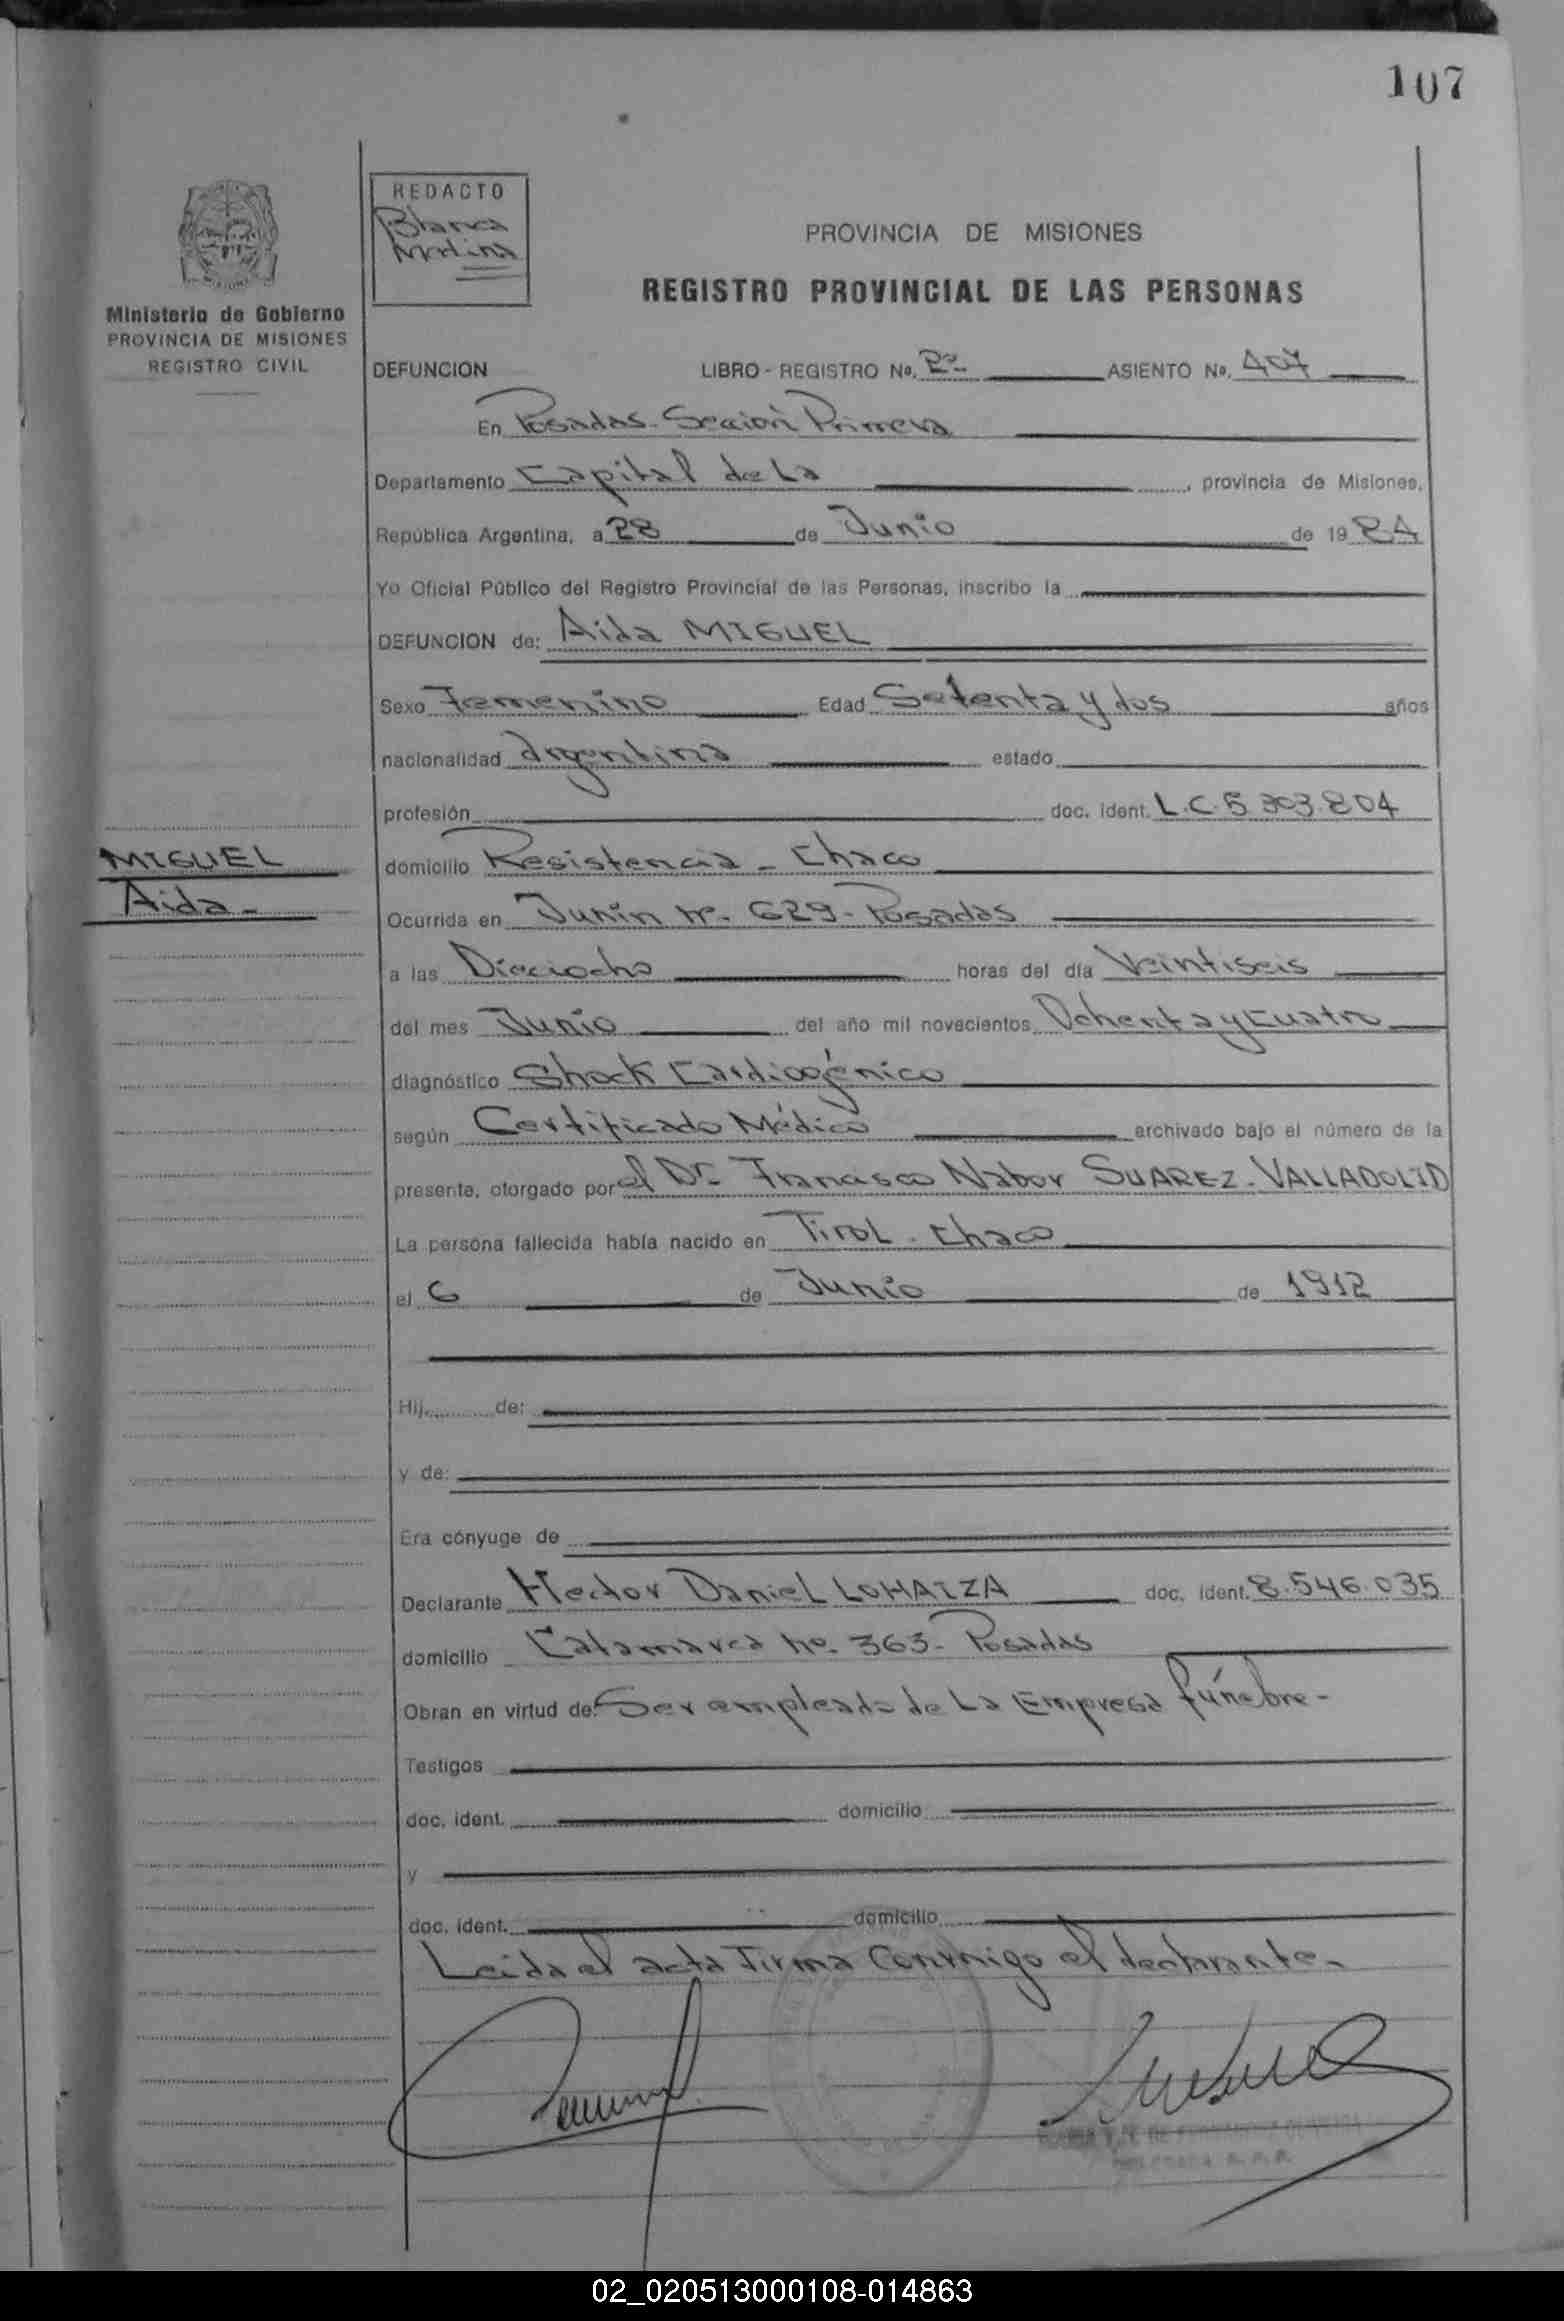 107
REDACTO
Blanca
Molina
PROVINCIA DE MISIONES
REGISTRO PROVINCIAL DE LAS PERSONAS
Ministerio de Gobierno
PROVINCIA DE MISIONES
REGISTRO CIVIL
DEFUNCION LIBRO - REGISTRO No. 2º ASIENTO No. 407
En Posadas - Sección Primera
Departamento Capital de La, provincia de Misiones,
República Argentina, a 28 de Junio de 1984
Yo Oficial Público del Registro Provincial de las Personas, inscribo la
DEFUNCION de: Aida MIGUEL
Sexo Femenino Edad Setenta y dos años
nacionalidad Argentina estado
profesión doc. ident. L.C. 5.303.804
MIGUEL
Aida -
domicilio Resistencia - Chaco
Ocurrida en Junín Nº - 629 - Posadas
a las Dieciocho horas del día Veintiseis
del mes Junio del año mil novecientos Ochenta y cuatro
diagnóstico Shock Cardiogénico
según Certificado Médico archivado bajo el número de la
presente, otorgado por el Dr. Francisco Nabor SUAREZ - VALLADOLID
La persona fallecida había nacido en Tirol - Chaco
el 6 de Junio de 1912
Hij de:
y de:
Era cónyuge de
Declarante Hector Daniel LOHAIZA doc. ident. 8.546.035
domicilio Catamarca Nº - 363 - Posadas
Obran en virtud de: Ser empleado de La Empresa fúnebre -
Testigos
doc. ident. domicilio
y
doc. ident. domicilio
Leida el acta Firma Conmigo el declarante -
02_020513000108-014863